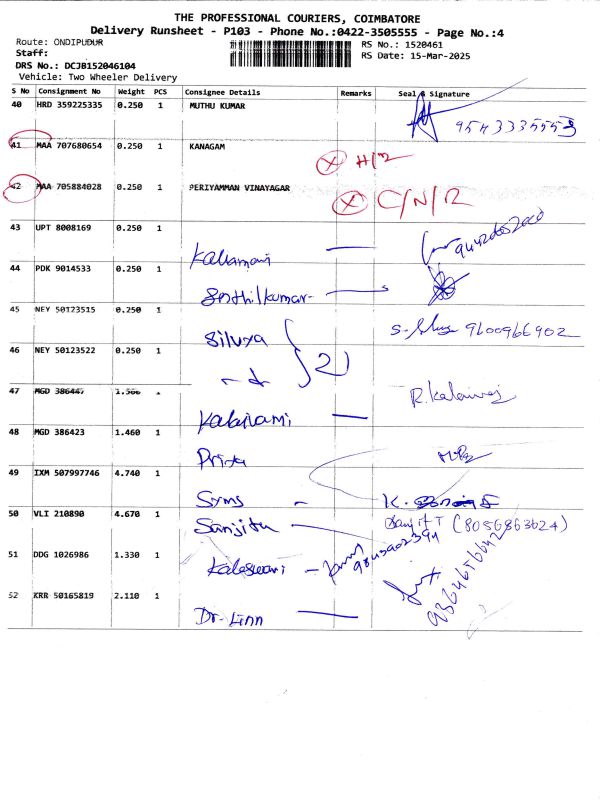 THE PROFESSIONAL COURIERS, COIMBATORE
Delivery Runsheet - P103 - Phone No.:0422-3505555 - Page No.:4
Route: ONDIPUDUR RS No.: 1520461
Staff: RS Date: 15-Mar-2025
DRS No.: DCJB152046104
Vehicle: Two Wheeler Delivery
S No Consignment No Weight PCS Consignee Details Remarks Seal & Signature
40 HRD 359225335 0.250 1 MUTHU KUMAR
41 MAA 707680654 0.250 1 KANAGAM
X
42 MAA 705884028 0.250 1 PERIYAMMAN VINAYAGAR
X C/N/R
43 UPT 8008169 0.250 1
44 PDK 9014533 0.250 1
Senthilkumar-
45 NEY 50123515 0.250 1
9600966902
46 NEY 50123522 0.250 1
2
47 MGD 386447 1.560 1
48 MGD 386423 1.460 1
Priya
49 IXM 507997746 4.740 1
50 VLI 210890 4.670 1
(8056863624)
51 DDG 1026986 1.330 1
52 KRR 50165819 2.110 1
Dr-Linn